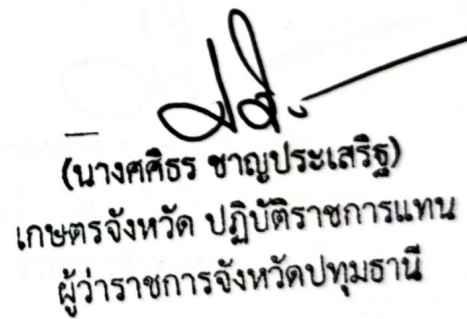 (นางศศิธร ชาญประเสริฐ)
เกษตรจังหวัด ปฏิบัติราชการแทน
ผู้ว่าราชการจังหวัดปทุมธานี